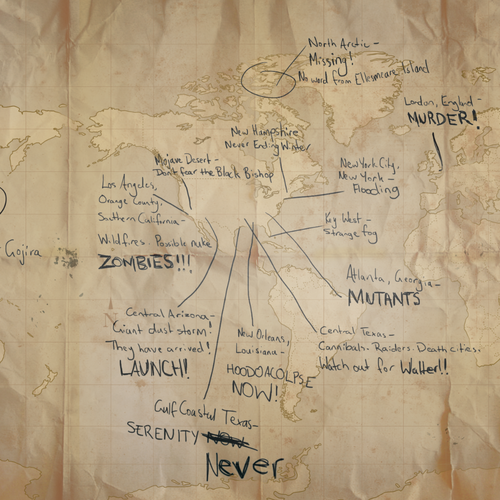 North Arctic -
Missing!
No word from Ellesmere Island
London, England -
MURDER!
New Hampshire
Never Ending Winter
Mojave Desert -
Don't fear the Black Bishop
New York City,
New York -
Flooding
Los Angeles,
Orange County,
Southern California -
Wildfires. Possible nuke
ZOMBIES!!!
Key West -
Strange fog
Gojira
Atlanta, Georgia -
MUTANTS
Central Arizona -
Giant dust storm!
They have arrived!
LAUNCH!
New Orleans,
Louisiana -
HOODOOACOLPSE
NOW!
Central Texas -
Cannibals. Raiders. Death cities.
Watch out for Walter!!
Gulf Coastal Texas -
SERENITY NOW
Never